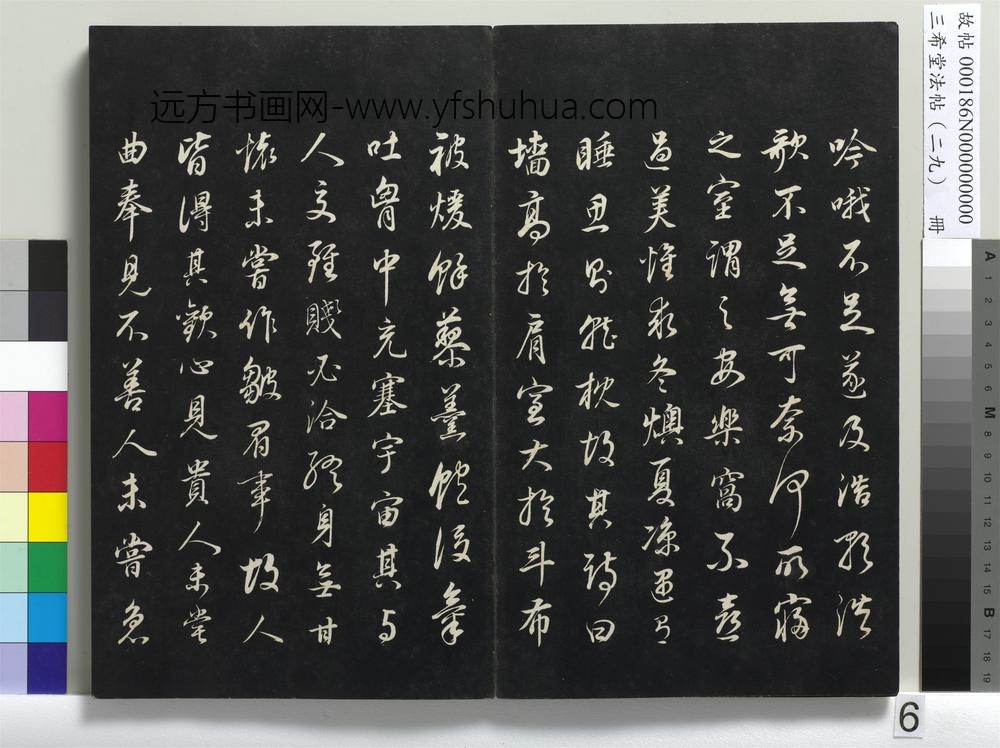 远方书画网-www.yfshuhua.com
吟哦不足遂及浩歌浩
歌不足無可奈何所寢
之室謂之安樂窩不喜
過美惟求冬燠夏涼遇有
睡思則就枕故其詩曰
墻高於肩室大於斗布
被煖餘藜羹飽後氣
吐胷中充塞宇宙其与
人交雖賤必洽終身無甘
壞未嘗作皺眉事故人
皆得其歡心見貴人未嘗
曲奉見不善人未嘗急
故帖 000186N000000000
三希堂法帖（二九） 冊
A 1 2 3 4 5 6 M 8 9 10 11 12 13 14 15 B 17 18 19
6